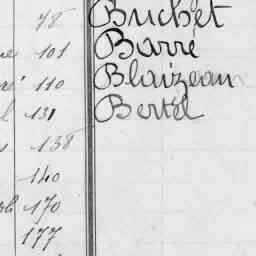 78 Buchet
101 Barré
110 Blaizeau
131 Bertel
138
140
170
177